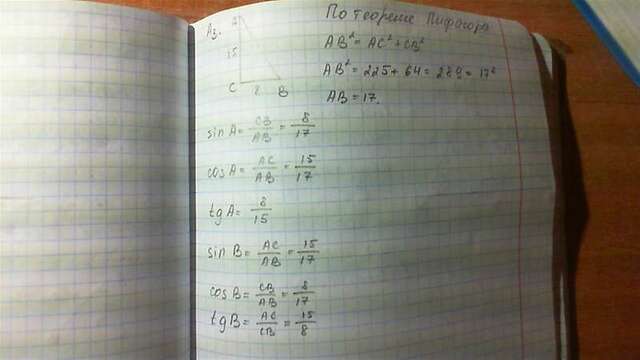 A3.
A
15
C 8 B
По теореме Пифагора
AB² = AC² + CB²
AB² = 225 + 64 = 289 = 17²
AB = 17.
sin A = CB/AB = 8/17
cos A = AC/AB = 15/17
tg A = 8/15
sin B = AC/AB = 15/17
cos B = CB/AB = 8/17
tg B = AC/CB = 15/8